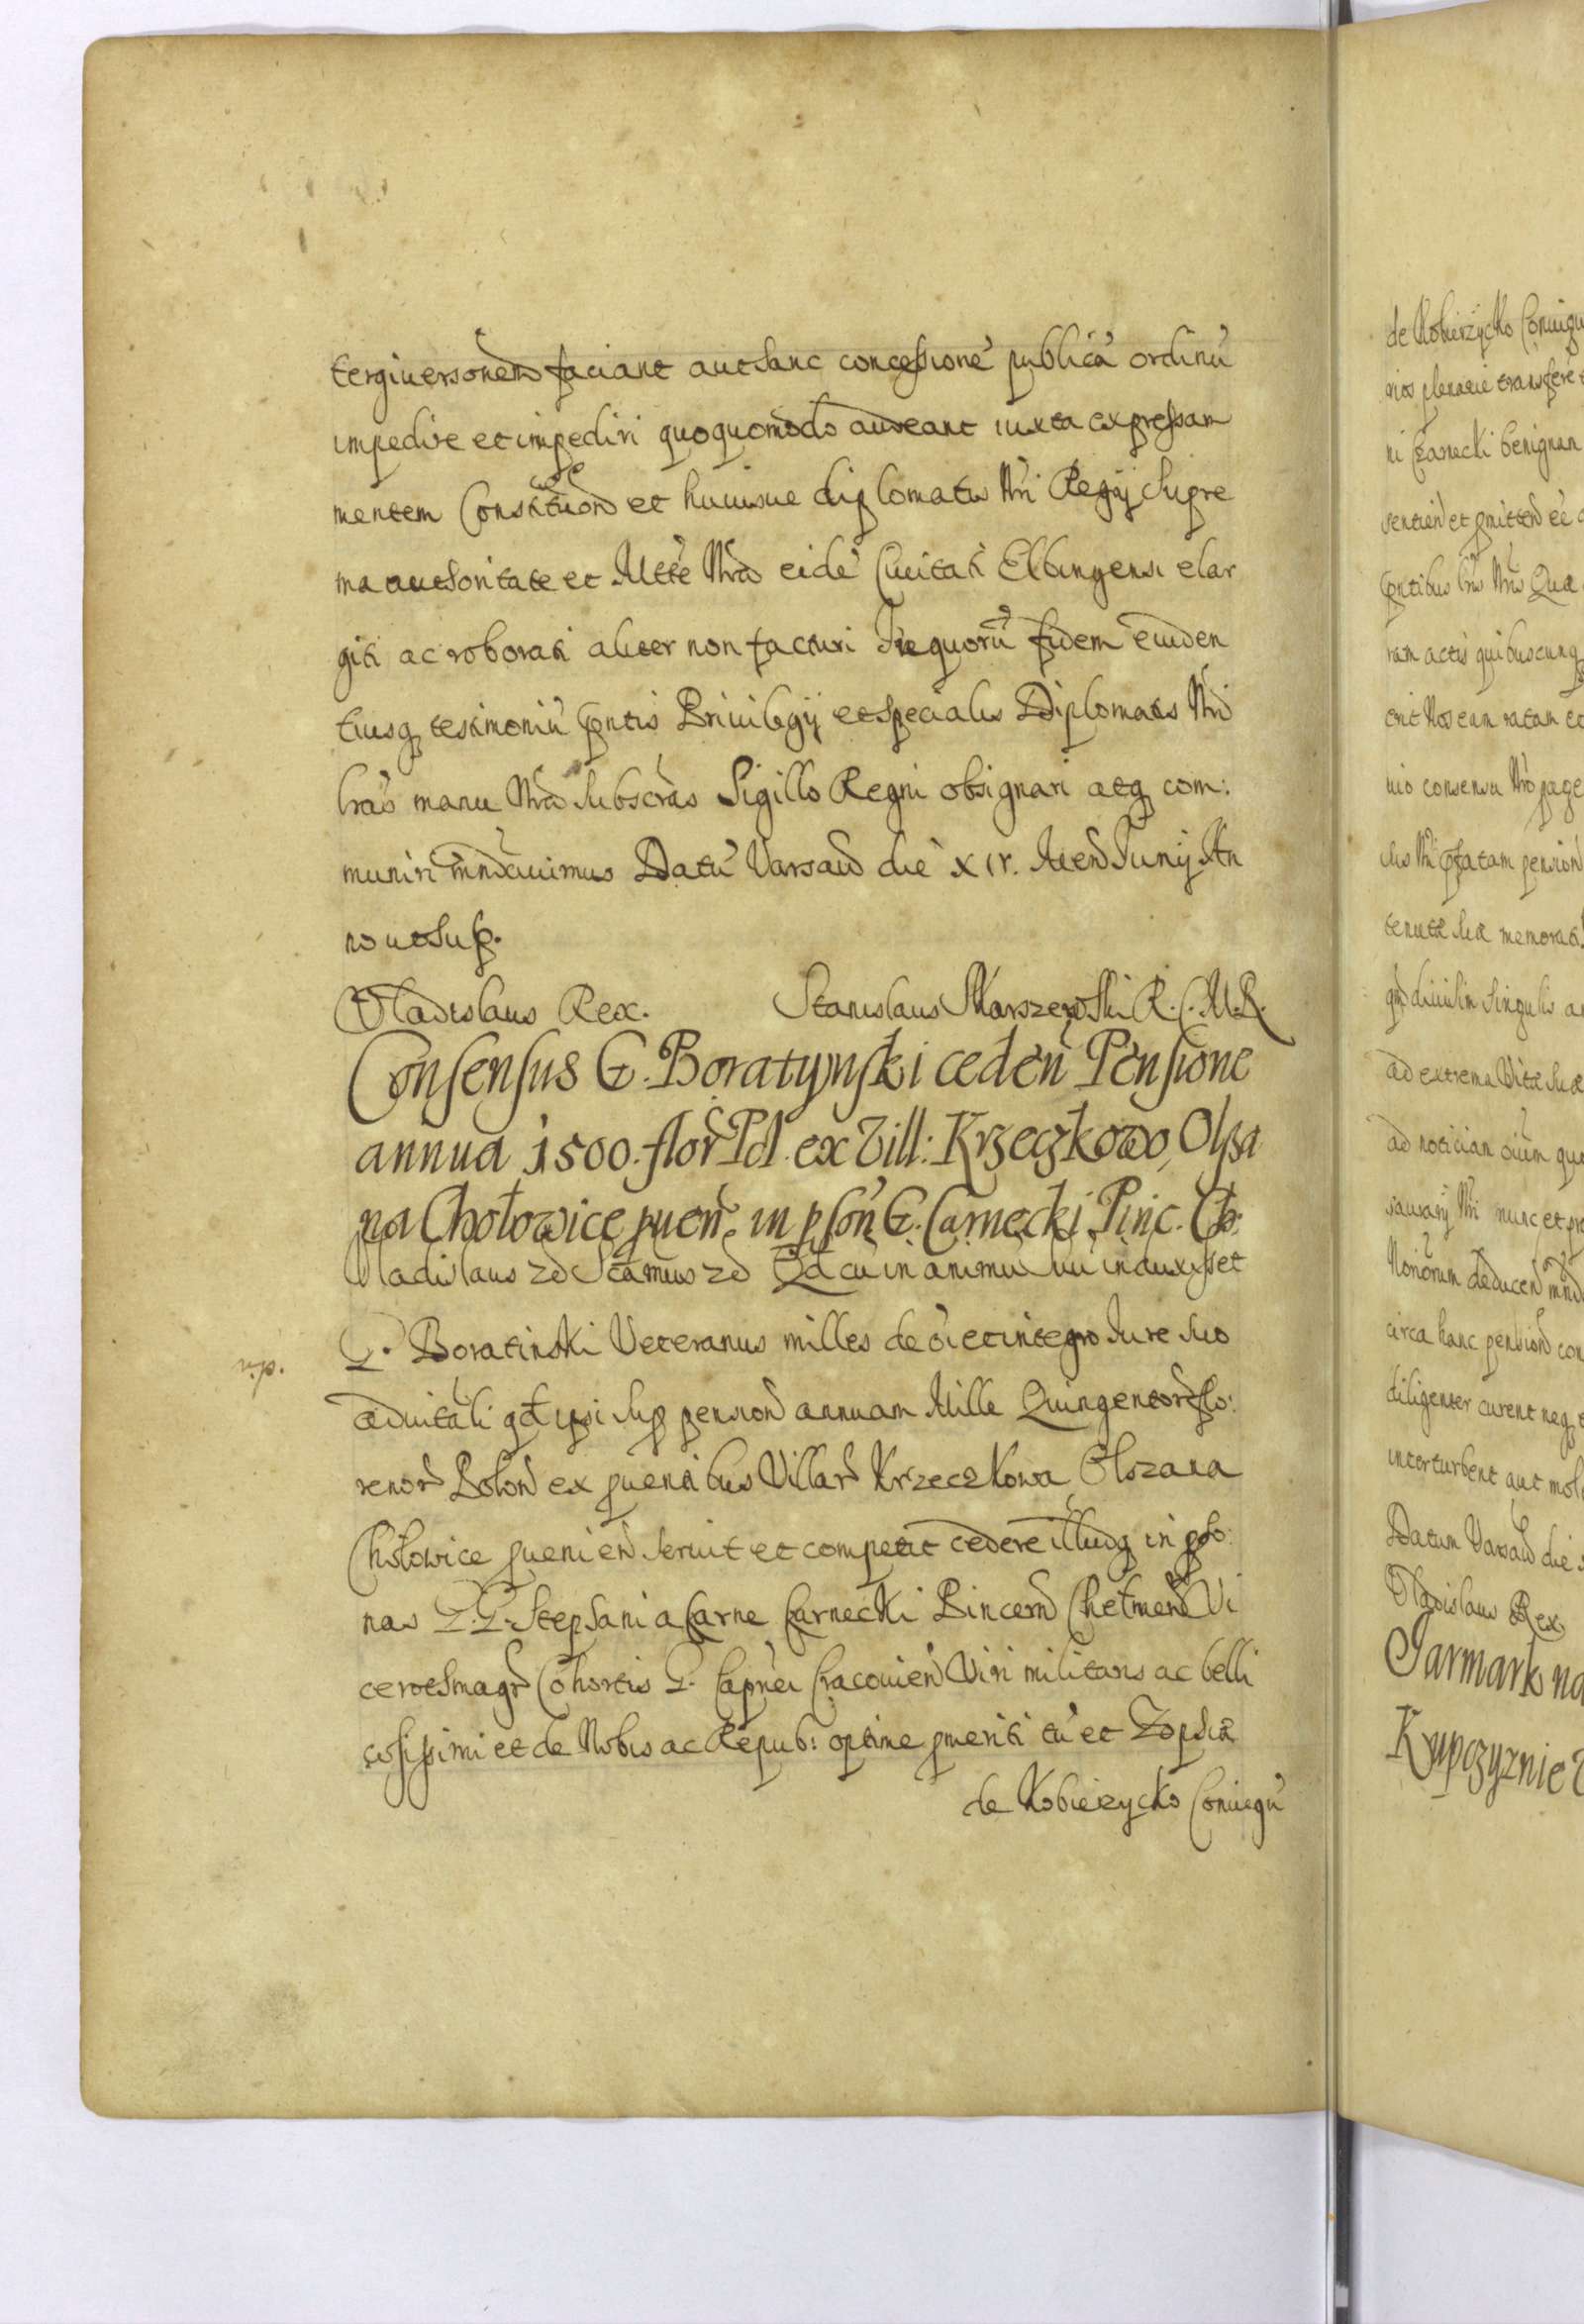 tergiuersonem faciant aut hanc concessione publica ordinu
impedire et impediri quoquomodo audeant iuxta expressam
mentem Constituon et huiusue diplomatis Nri Regij supre
ma authoritate et Mtte Nra eide Ciuitati Elbingensi elar
giti ac roborati aliter non facturi In quoru fidem euiden
tiusq testimoniu pntis Priuilegij et specialis Diplomatis Nri
lras manu Nra subscras Sigillo Regni obsignari atq com:
muniri mndauimus Datu Varsau die XIV. Men Junij An
no ut sup.
Vladislaus Rex. Stanislaus Skarszewski R. C. M. R.
Consensus G. Boratynski ceden Pensione
annua 1500. flor Pol. ex Vill: Krzeczkowo, Olsza
na Chołowice puen. in pson G. Carnecki Pinc. Ch:
Vladislaus zd Sctamus zd Qd cu in animu suu induxisset
G. Boratinski Veteranus milles de oi et integro Jure suo
aduitali qd ipsi sup pension annuam Mille Quingentor flo:
renor Polon ex puentibus Villar Krzeczkowa Olszana
Chołowice puenien seruit et competit cedere illudq in pso:
nas G. G. Stephani a Carne Carnecki Pincern Chełmen Vi
cerothmagr Cohortis G. Capnei Cracouien Viri militaris ac belli
cosissimi et de Nobis ac Repub: optime pmeriti tu et Zophiæ
de Kobierzycko Coniugu
n.p.
de Kobierzycko Coniugu
rios plenarie transfere
ni Czarnecki benignum
sentien et pmitten ee
pntibus lris Nris Qua
ram actis quibuscunq
erit Nos eam ratam et
nio consensu Nro
lis Nri pfatam pension
tenutæ suæ memorati
diuisim singulis an
ad extrema Vitæ suæ
ad noticiam oium quo
saurarij Nri nunc et pro
Noniorum deducen mnd
circa hanc pension con
diligenter curent neq
interturbent aut mol
Datum Varsau die
Vladislaus Rex.
Jarmark na
Kupczyznie